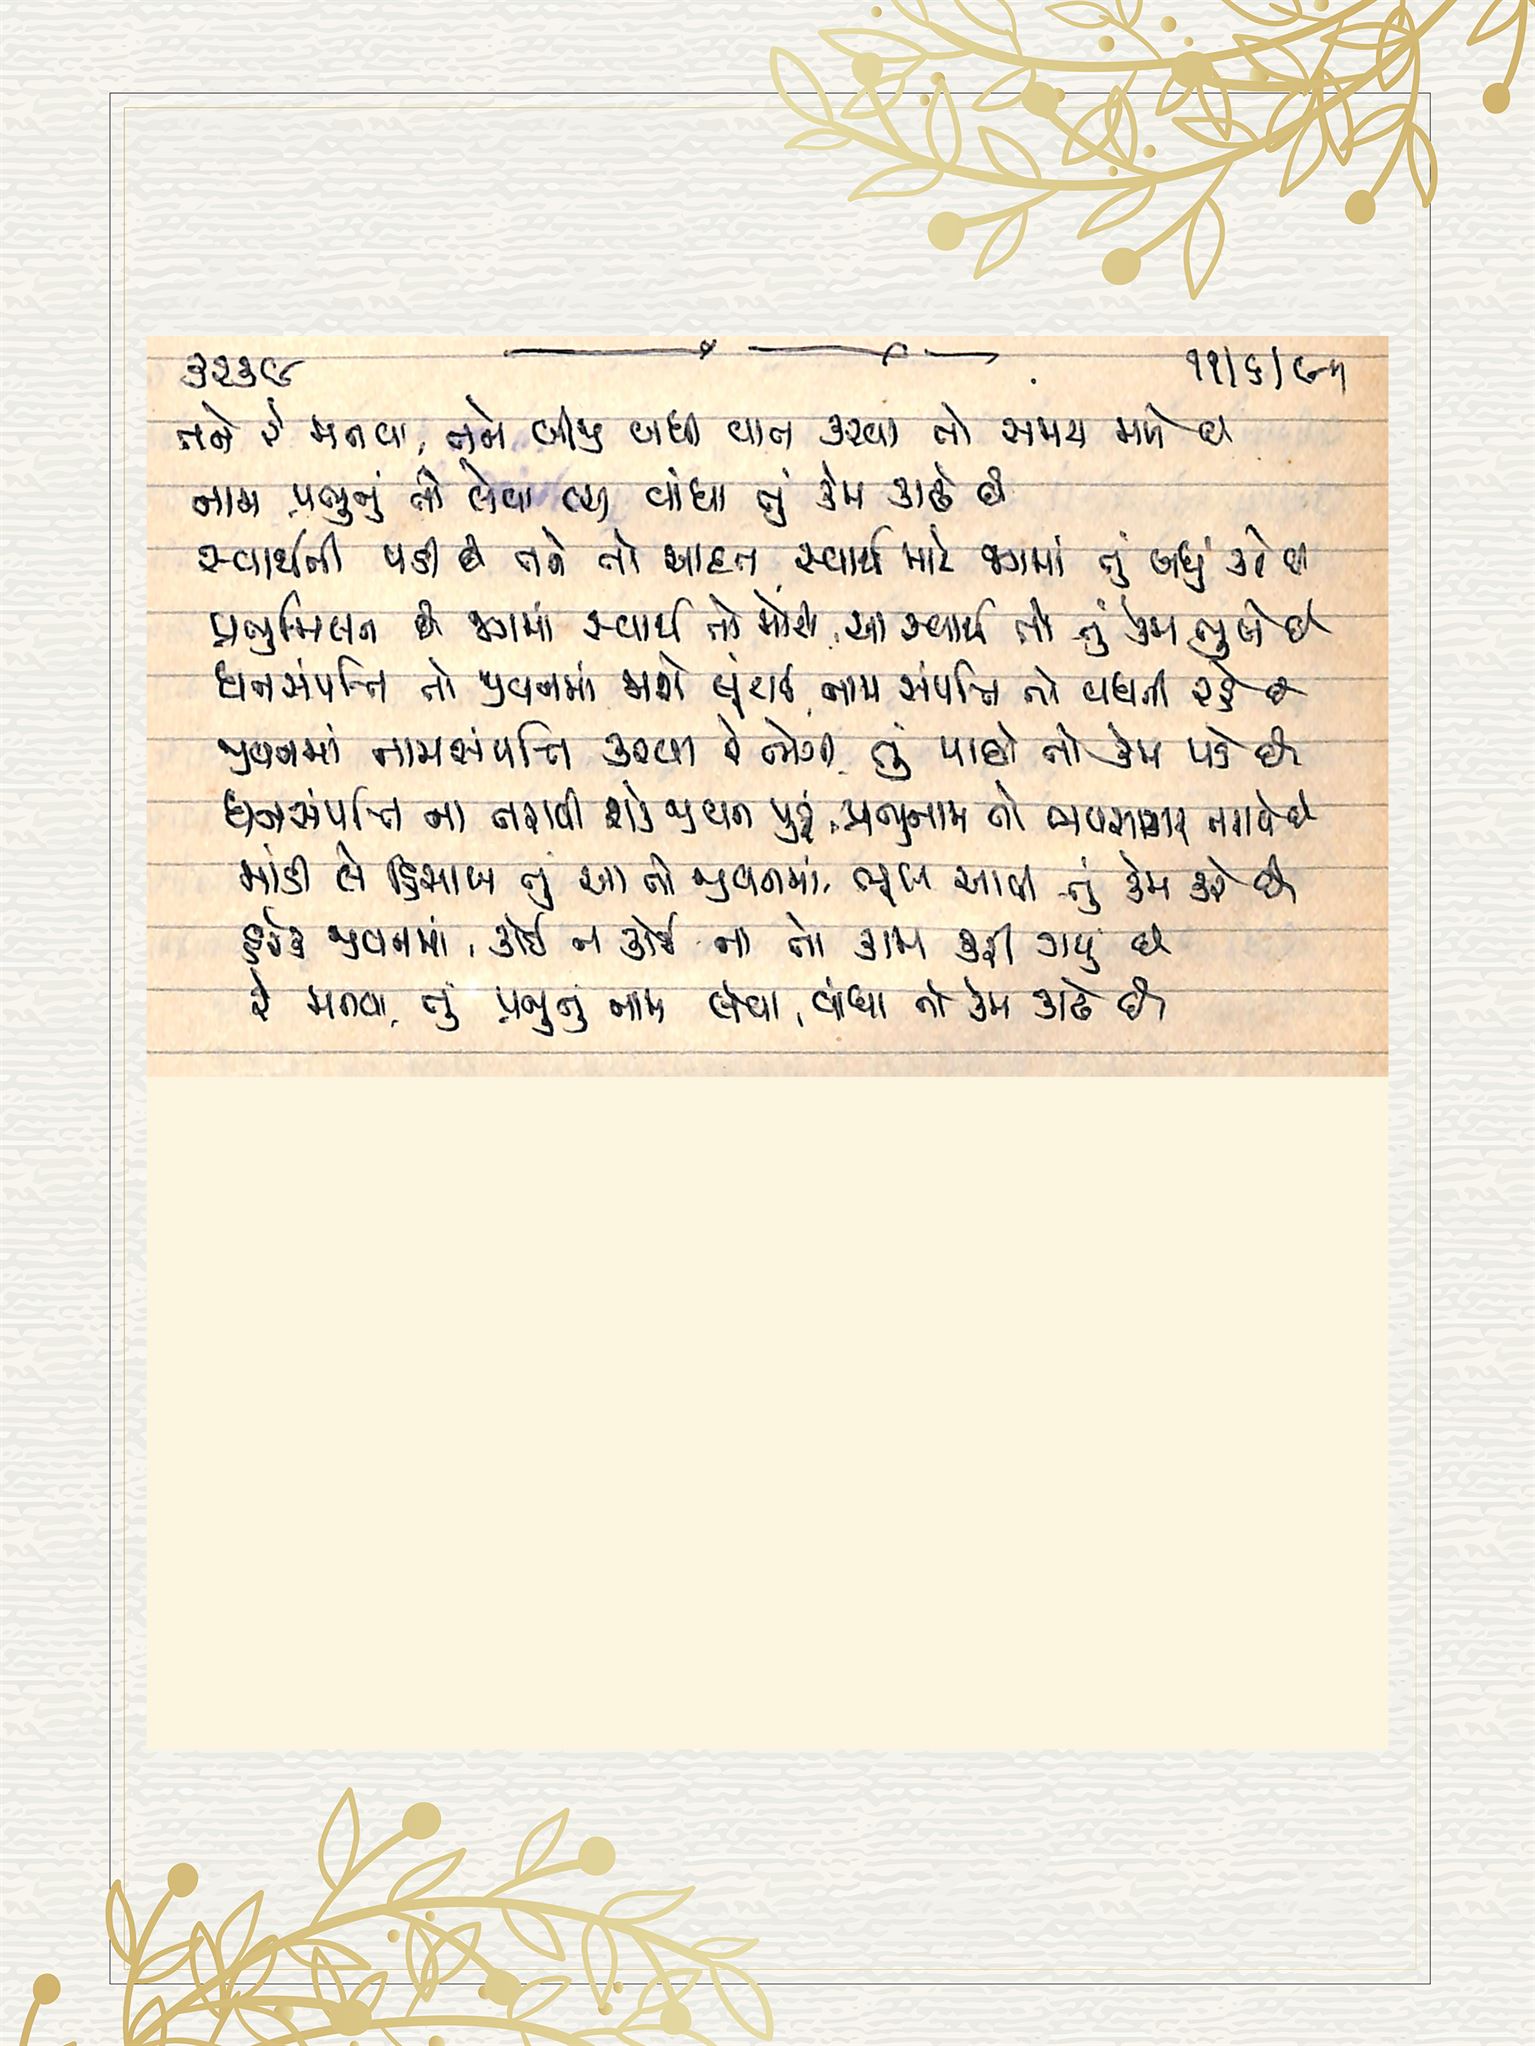 ૩૨૩૯ ૧૧/૬/૯૫
તને રે મનવા, તને બીજી બધી વાત કરવા તો સમય મળે છે
નામ પ્રભુનું તો લેવા વાંધા તું કેમ કાઢે છે
સ્વાર્થની પડી છે તને તો આદત, સ્વાર્થ માટે જગમાં તું બધું કરે છે
પ્રભુમિલન છે જગમાં સ્વાર્થ તો મોટો, આ સ્વાર્થ તો તું કેમ ભુલે છે
ધનસંપત્તિ તો જીવનમાં જાશે લૂંટાઈ, નામ સંપત્તિ તો વધતી રહે છે
જીવનમાં નામસંપત્તિ કરવા રે ભેગી, તું પાછો તો કેમ પડે છે
ધનસંપત્તિ ના તરાવી શકે જીવન પુરું, પ્રભુનામ તો ભવસાગર તરાવે છે
માંડી લે હિસાબ તું આ તો જીવનમાં, ભૂલ આવી તું કેમ કરે છે
હરેક જીવનમાં, કોઈ ન કોઈ ના તો કામ કરી ગયું છે
રે મનવા, તું પ્રભુનું નામ લેવા, વાંધા તો કેમ કાઢે છે